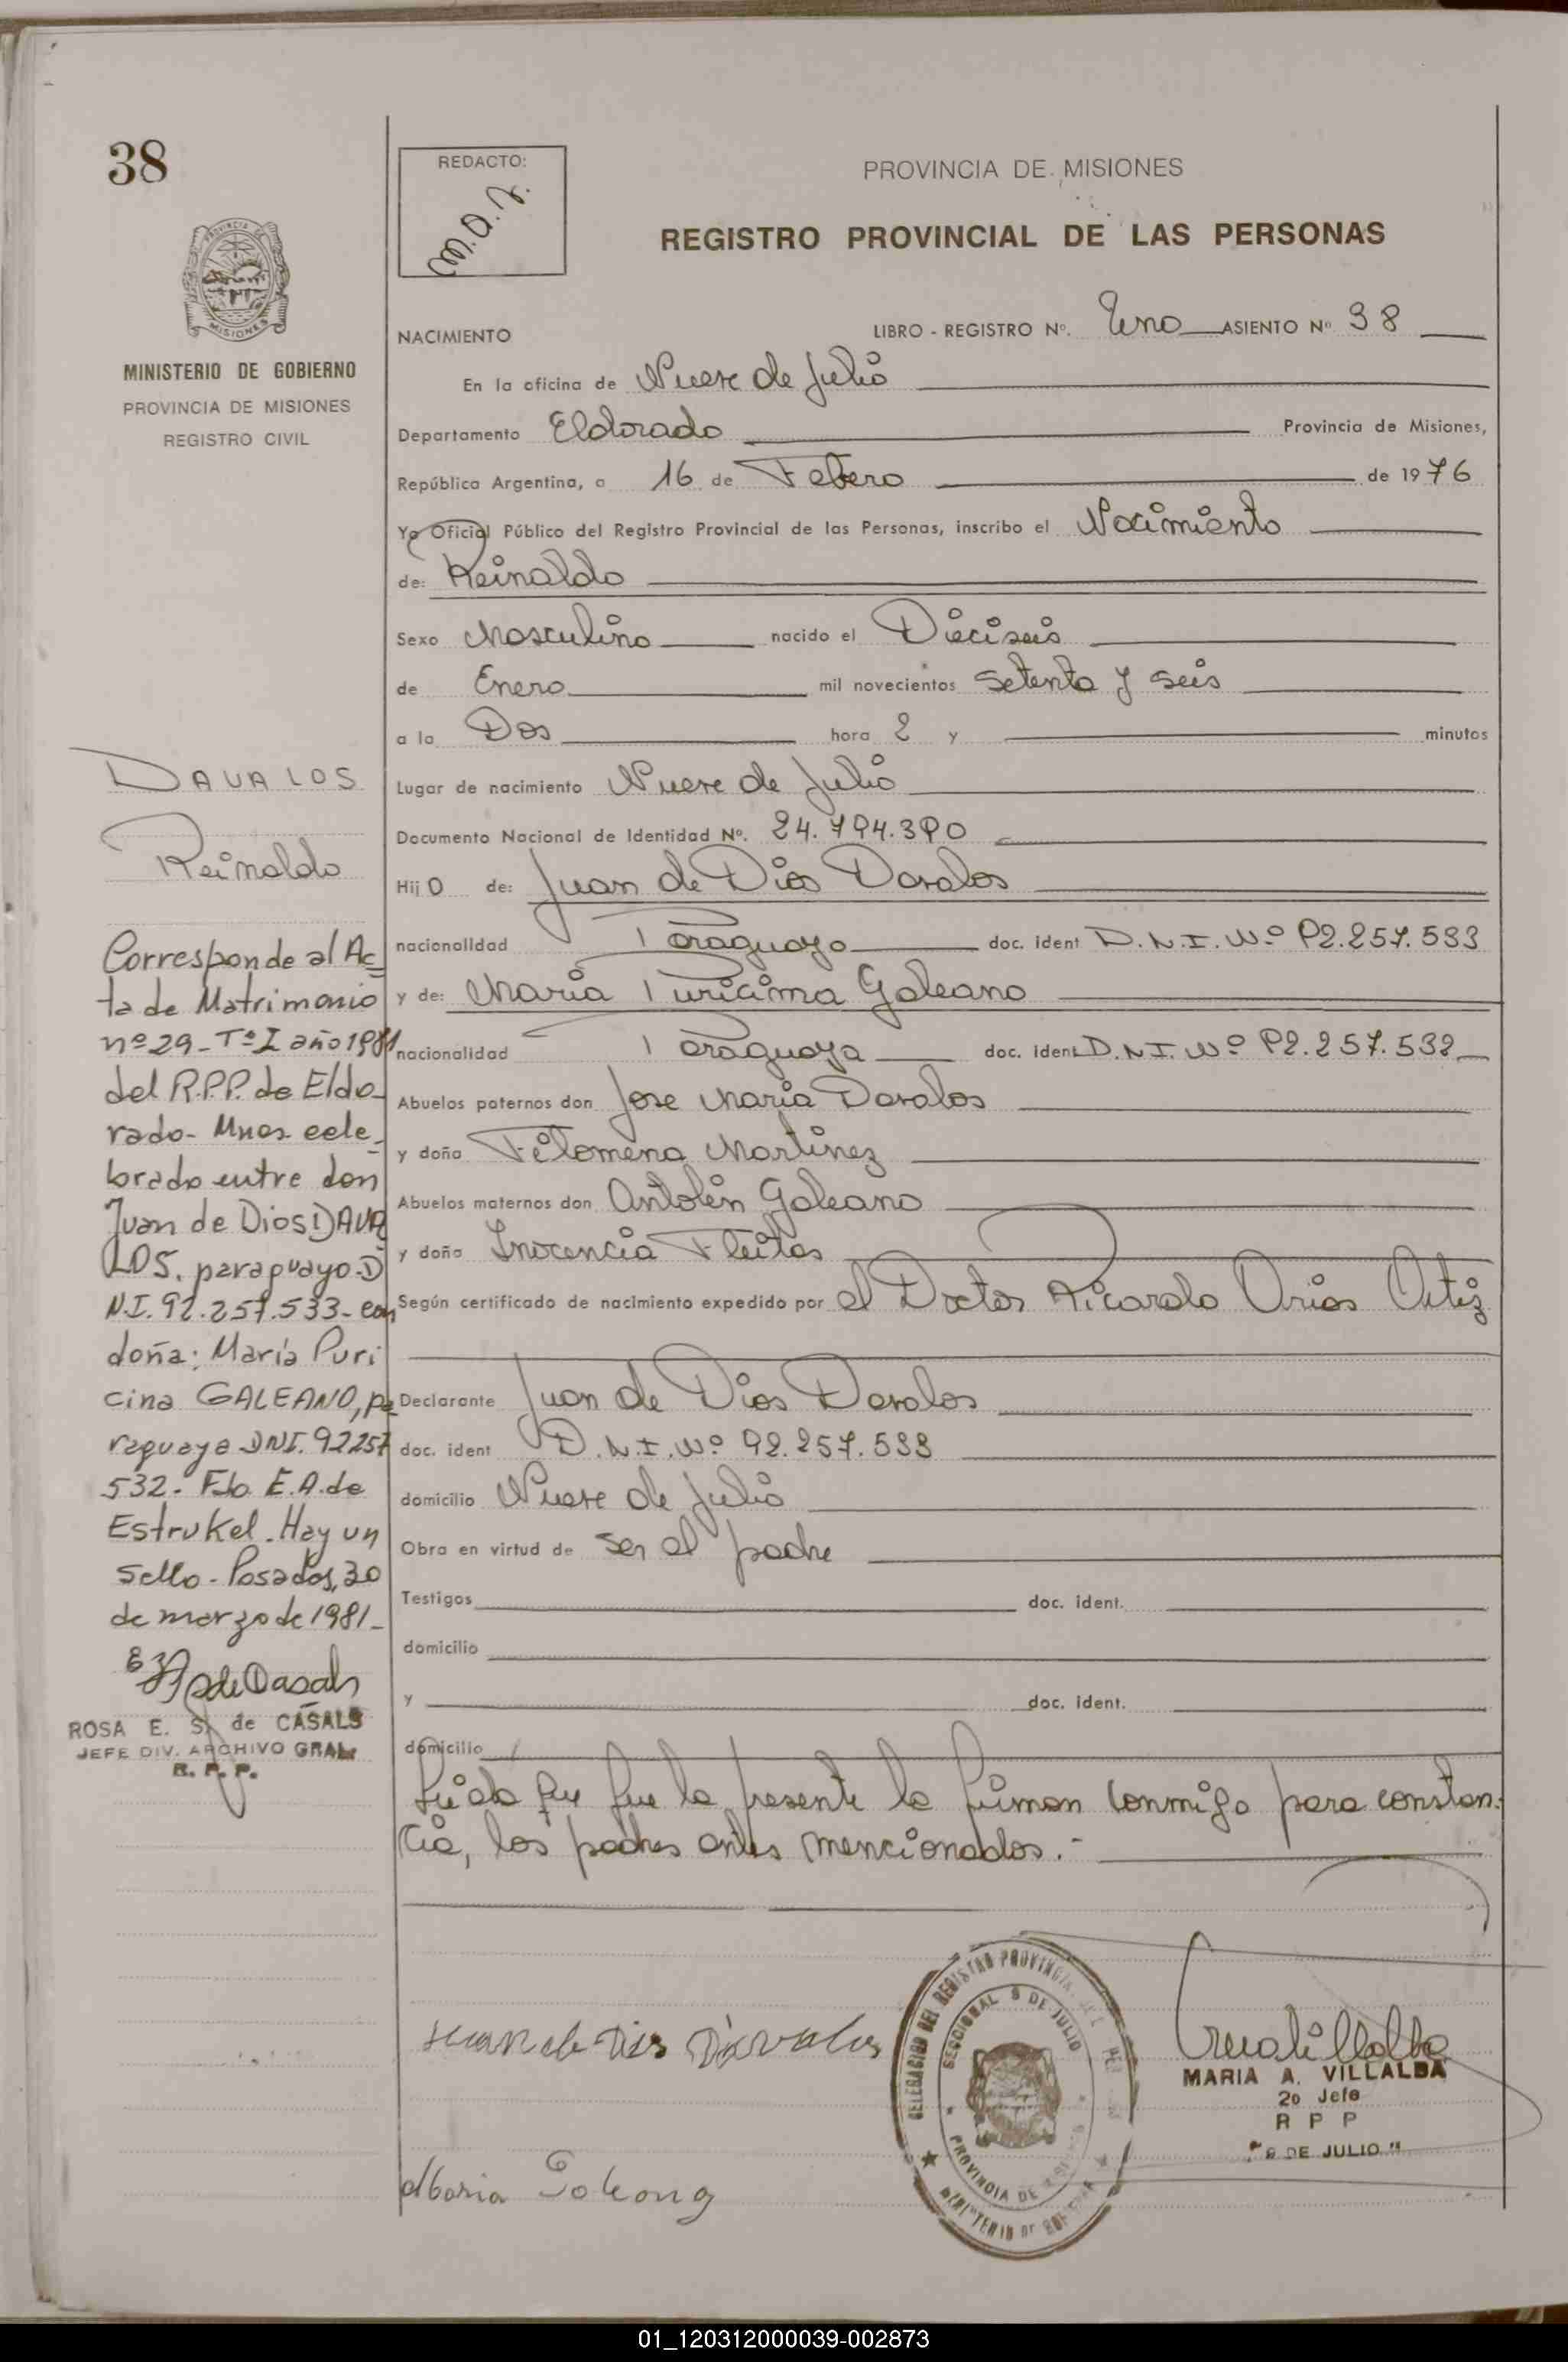 38
REDACTO:
M.A.V.
PROVINCIA DE MISIONES
REGISTRO PROVINCIAL DE LAS PERSONAS
PROVINCIA DE
MISIONES
MINISTERIO DE GOBIERNO
PROVINCIA DE MISIONES
REGISTRO CIVIL
NACIMIENTO LIBRO - REGISTRO Nº. Uno ASIENTO Nº 38
En la oficina de Nueve de Julio
Departamento Eldorado Provincia de Misiones,
República Argentina, a 16 de Febero de 1976
Yo Oficial Público del Registro Provincial de las Personas, inscribo el Nacimiento
de: Reinaldo
Sexo Masculino nacido el Dieciseis
de Enero mil novecientos setenta y seis
a la Dos hora 2 y minutos
Lugar de nacimiento Nueve de Julio
Documento Nacional de Identidad Nº. 24.794.390
Hijo de: Juan de Dios Davalos
nacionalidad Paraguayo doc. ident D.N.I. Nº 92.257.533
y de: Maria Puricima Galeano
nacionalidad Paraguaya doc. ident. D.N.I. Nº 92.257.532
Abuelos paternos don Jose Maria Davalos
y doña Filomena Martinez
Abuelos maternos don Antolin Galeano
y doña Inocencia Fleitas
Según certificado de nacimiento expedido por el Doctor Ricardo Arias Ortiz
Declarante Juan de Dios Davalos
doc. ident D.N.I. Nº 92.257.533
domicilio Nueve de Julio
Obra en virtud de ser el padre
Testigos doc. ident.
domicilio
y doc. ident.
domicilio
Leida que fue la presente la firman conmigo para constan-
cia, los padres antes mencionados.-
DAVALOS
Reinaldo
Corresponde al Ac-
ta de Matrimonio
nº 29- Tº I año 1981
del R.P.P. de Eldo-
rado- Mnes. cele-
brado entre don
Juan de Dios DAVA
LOS, paraguayo-D
N.I. 92.257.533- con
doña: María Puri
cina GALEANO, pa
raguaya DNI. 92257
532- Fdo E.A. de
Estrukel. Hay un
sello- Posadas, 30
de marzo de 1981-
ROSA E. S. de CASALS
JEFE DIV. ARCHIVO GRAL.
R. P. P.
Juan de Dios Davalos
Maria Galeano
DELEGACION DEL REGISTRO PROVINCIAL DE
SECCIONAL 9 DE JULIO
PROVINCIA DE
MINISTERIO DE
MARIA A. VILLALBA
2o Jefe
R P P
"9 DE JULIO"
01_120312000039-002873